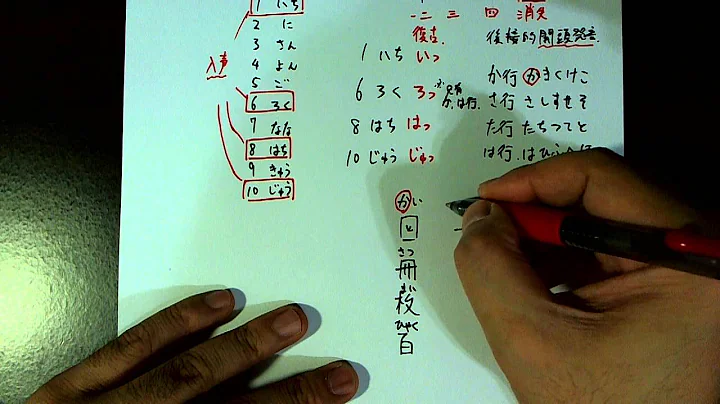 1 いち
2 に
3 さん
4 よん
5 ご
6 ろく
7 なな
8 はち
9 きゅう
10 じゅう
入声
一 二 三 四 消失
後接的開頭発音
1 いち いっ
6 ろく ろっ
か,は行.
8 はち はっ
10 じゅう じゅっ
か行 かきくけこ
さ行 さしすせそ
た行 たちつてと
は行.はひふへほ
かい
回
さつ
冊
枚
ひゃく
百